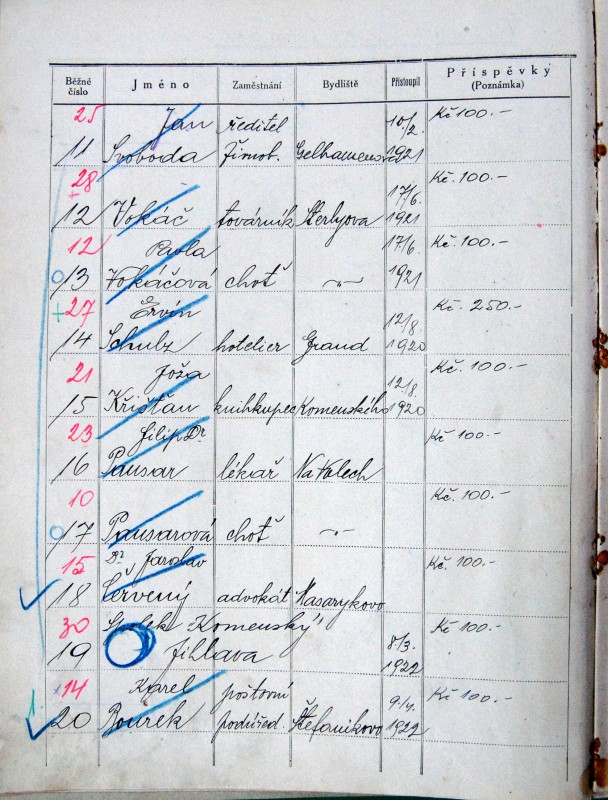 Běžné číslo Jméno Zaměstnání Bydliště Přistoupil Příspěvky (Poznámka)
25 Jan ředitel 10/2. Kč 100.-
11 Svoboda 1921
28 17/6. Kč. 100.-
12 Vokáč továrník 1921
12 Pavla 17/6. Kč. 100.-
13 Vokáčová choť -„- 1921
27 Ervín 12/8. Kč. 250.-
14 Schulz hotelier Grand 1920
21 Joža 12/8. Kč. 100.-
15 Křišťan knihkupec Komenského 1920
23 Filip Dr Kč 100.-
16 Pausar lékař Na Valech
10 Kč. 100.-
17 Pausarová choť -„-
15 Dr Jaroslav Kč. 100.-
18 Červený advokát Masarykovo
30 Spolek Komenský 8/3. Kč 100.-
19 Jihlava 1922
14 Karel poštovní 9/4. Kč 100.-
20 Bourek podúřed. Štefanikovo 1922